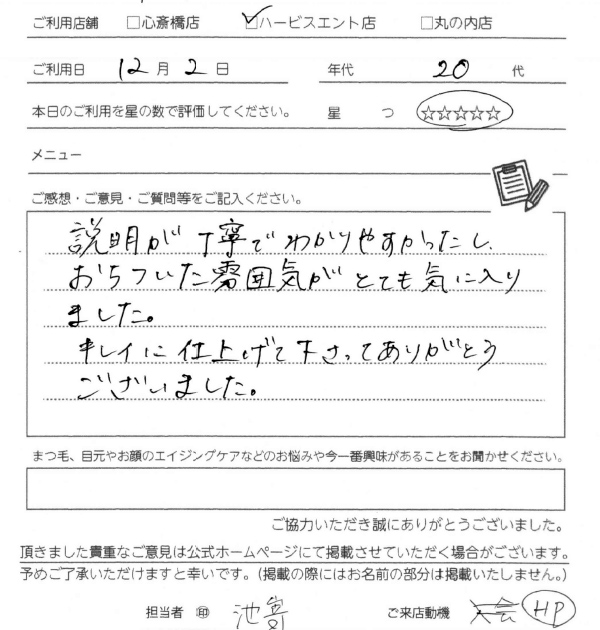 ご利用店舗 □心斎橋店 ☑ハービスエント店 □丸の内店
ご利用日 12月2日 年代 20代
本日のご利用を星の数で評価してください。 星 つ ☆☆☆☆☆
メニュー
ご感想・ご意見・ご質問等をご記入ください。
説明が丁寧でわかりやすかったし、
おちついた雰囲気がとても気に入り
ました。
キレイに仕上げて下さってありがとう
ございました。
まつ毛、目元やお顔のエイジングケアなどのお悩みや今一番興味があることをお聞かせください。
ご協力いただき誠にありがとうございました。
頂きました貴重なご意見は公式ホームページにて掲載させていただく場合がございます。
予めご了承いただけますと幸いです。(掲載の際にはお名前の部分は掲載いたしません。)
担当者 ㊞ 池 ご来店動機 HP